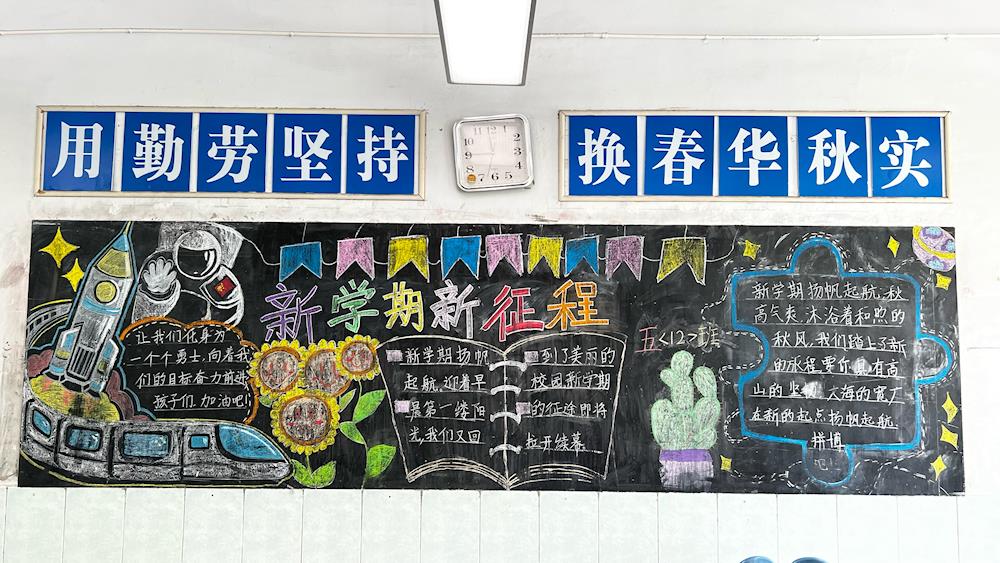 用勤劳坚持
换春华秋实
11 12 1
10 2
9 3
8 4
7 6 5
新学期新征程
五<12>班
让我们化身为
一个个勇士,向着我
们的目标奋力前进
孩子们,加油吧!
新学期扬帆
起航,迎着早
晨第一缕阳
光,我们又回
到了美丽的
校园新学期
的征途即将
拉开续幕......
新学期扬帆起航,秋
高气爽,沐浴着和熙的
秋风,我们踏上了新
的征程,要你具有高
山的坚 大海的宽广
在新的起点扬帆起航,
拼搏
吧!